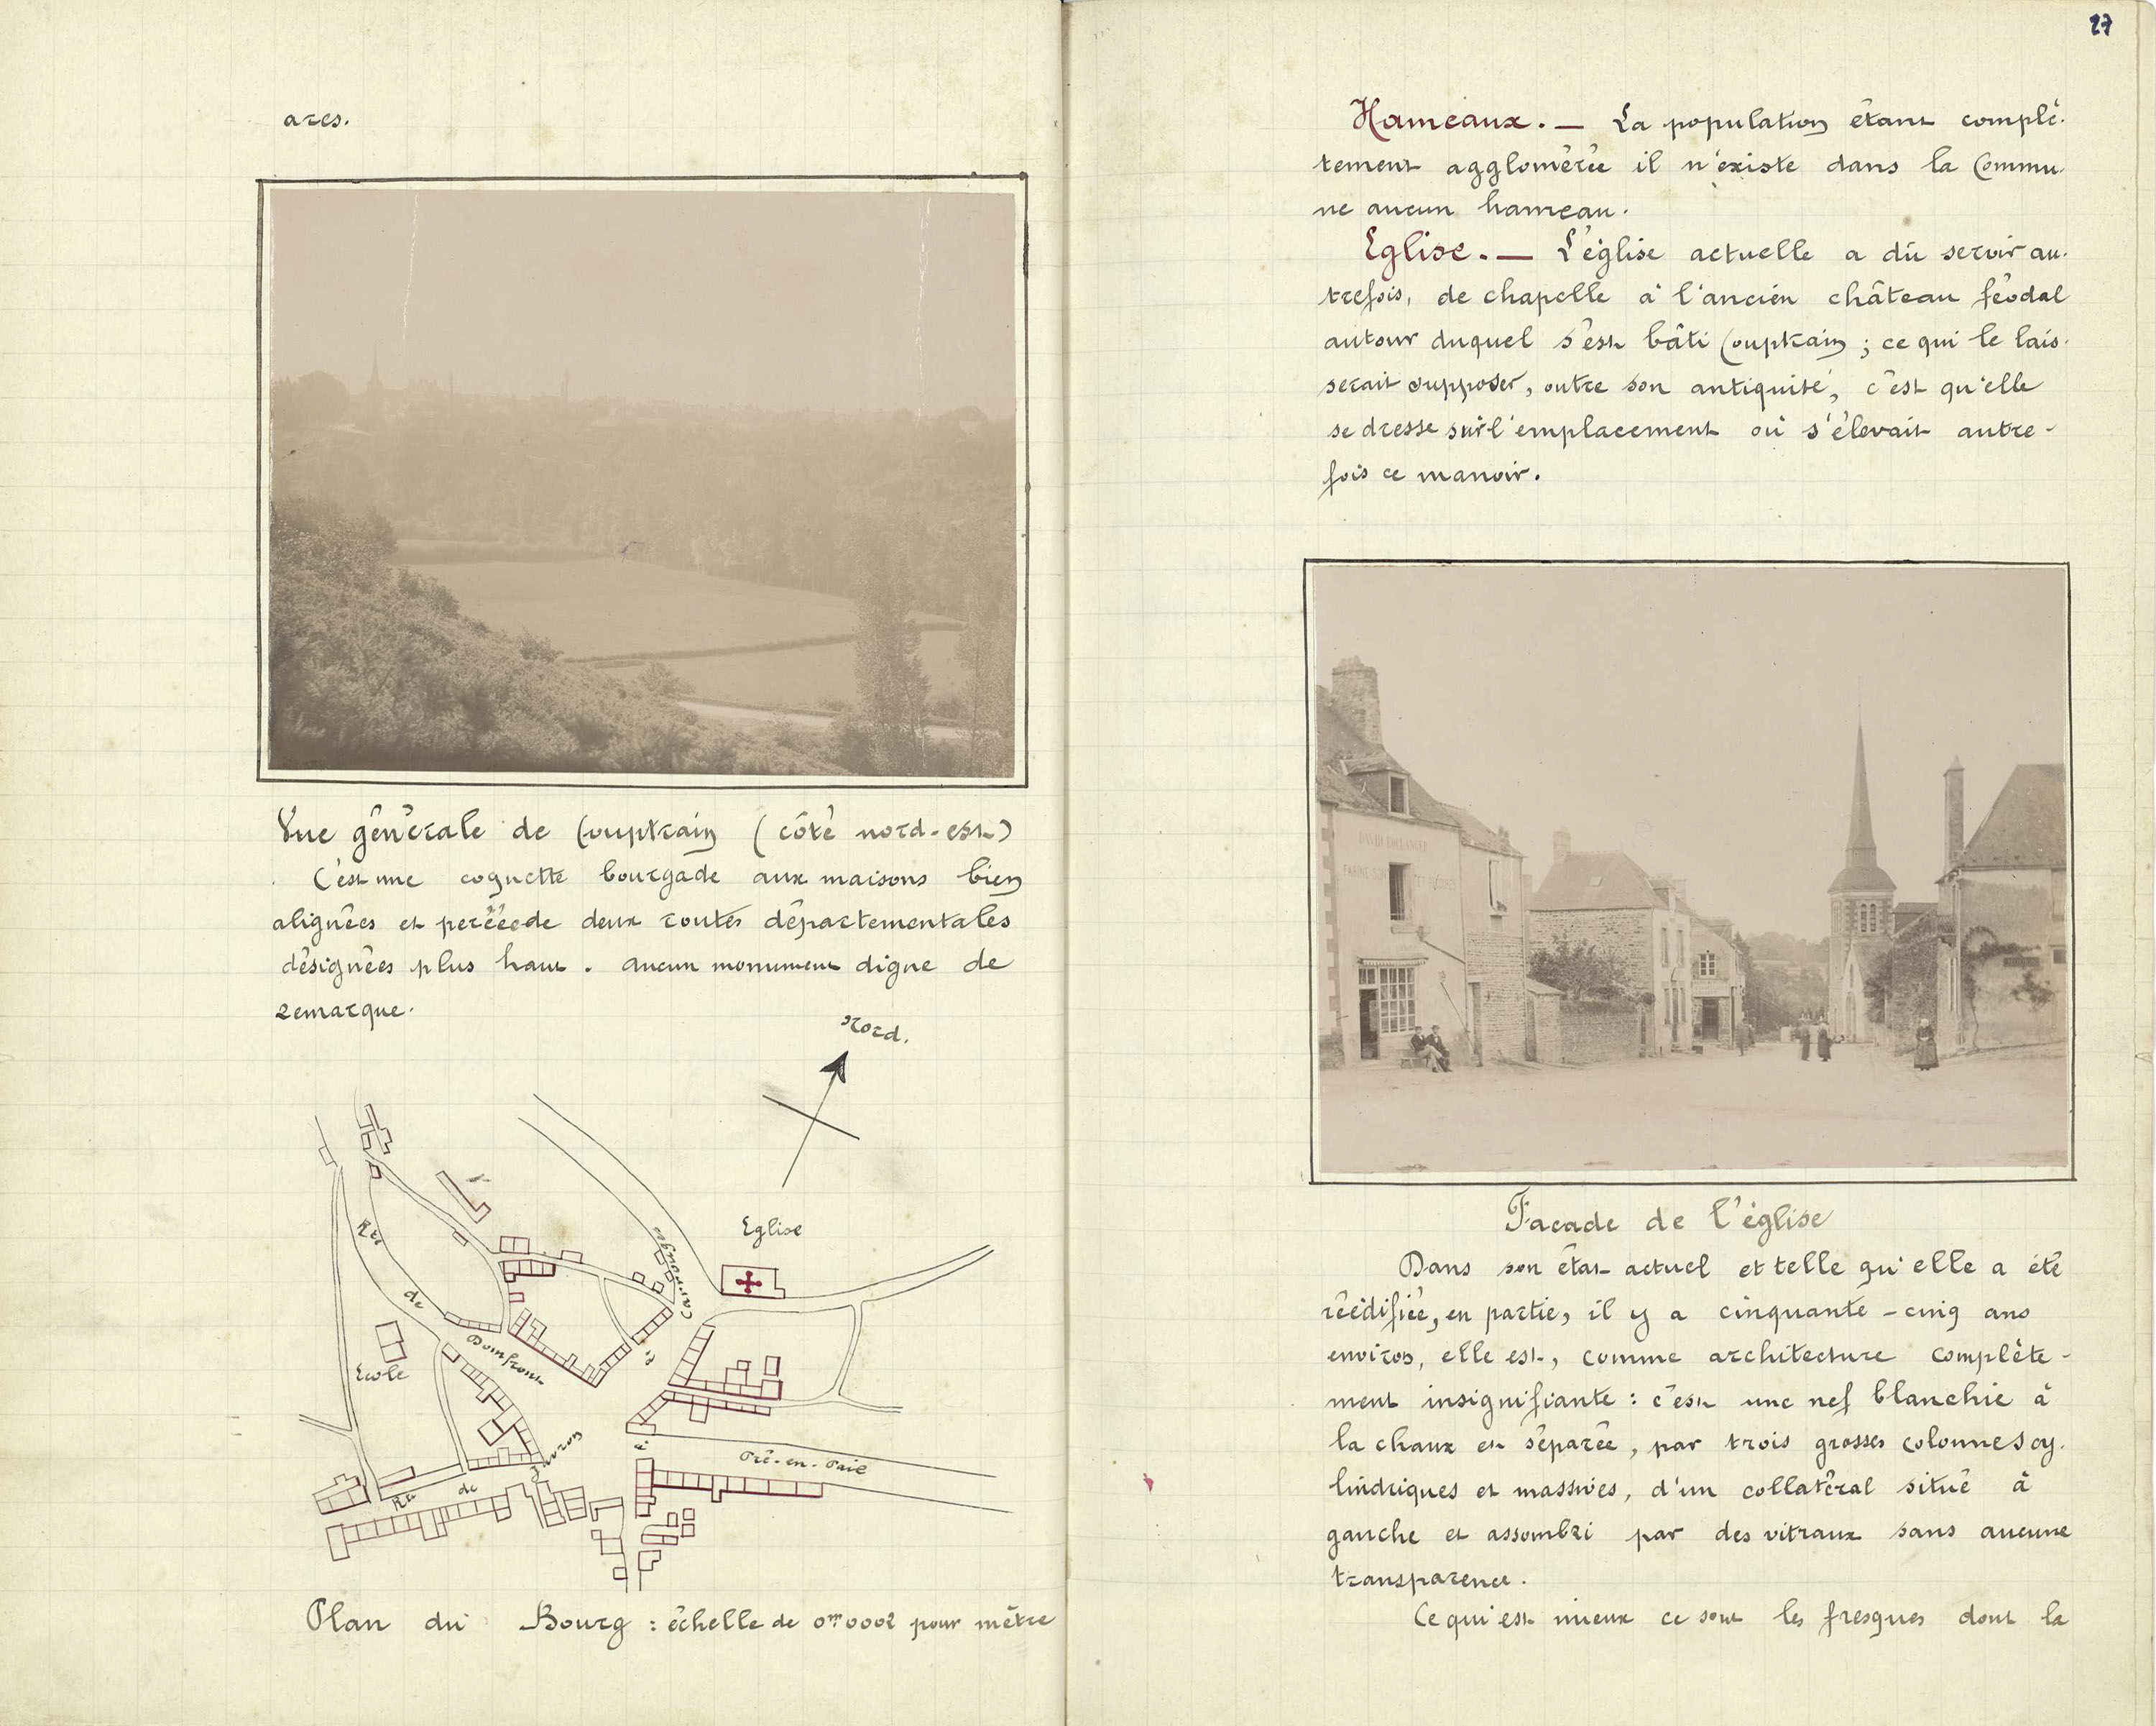 ares.
Vue générale de Couptrain (côté nord-est)
C'est une coquette bourgade aux maisons bien
alignées et percée de deux routes départementales
désignées plus haut. Aucun monument digne de
remarque.
Nord.
Eglise
Rue
de
Domfront
Carrouges
de
Ecole
Rue
de
Javron
de
Pré-en-Pail
Plan du Bourg : échelle de 0m0002 pour mètre
27
Hameaux. — La population étant complè-
tement agglomérée il n'existe dans la Commu-
ne aucun hameau.
Eglise. — L'église actuelle a dû servir au-
trefois, de chapelle à l'ancien château féodal
autour duquel s'est bâti Couptrain ; ce qui le lais-
serait supposer, outre son antiquité, c'est qu'elle
se dresse sur l'emplacement où s'élevait autre-
fois ce manoir.
DAVID BOULANGER
Facade de l'église
Dans son état actuel et telle qu'elle a été
réédifiée, en partie, il y a cinquante-cinq ans
environ, elle est, comme architecture complète-
ment insignifiante : c'est une nef blanchie à
la chaux et séparée, par trois grosses colonnes cy-
lindriques et massives, d'un collatéral situé à
gauche et assombri par des vitraux sans aucune
transparence.
Ce qui est mieux ce sont les fresques dont la